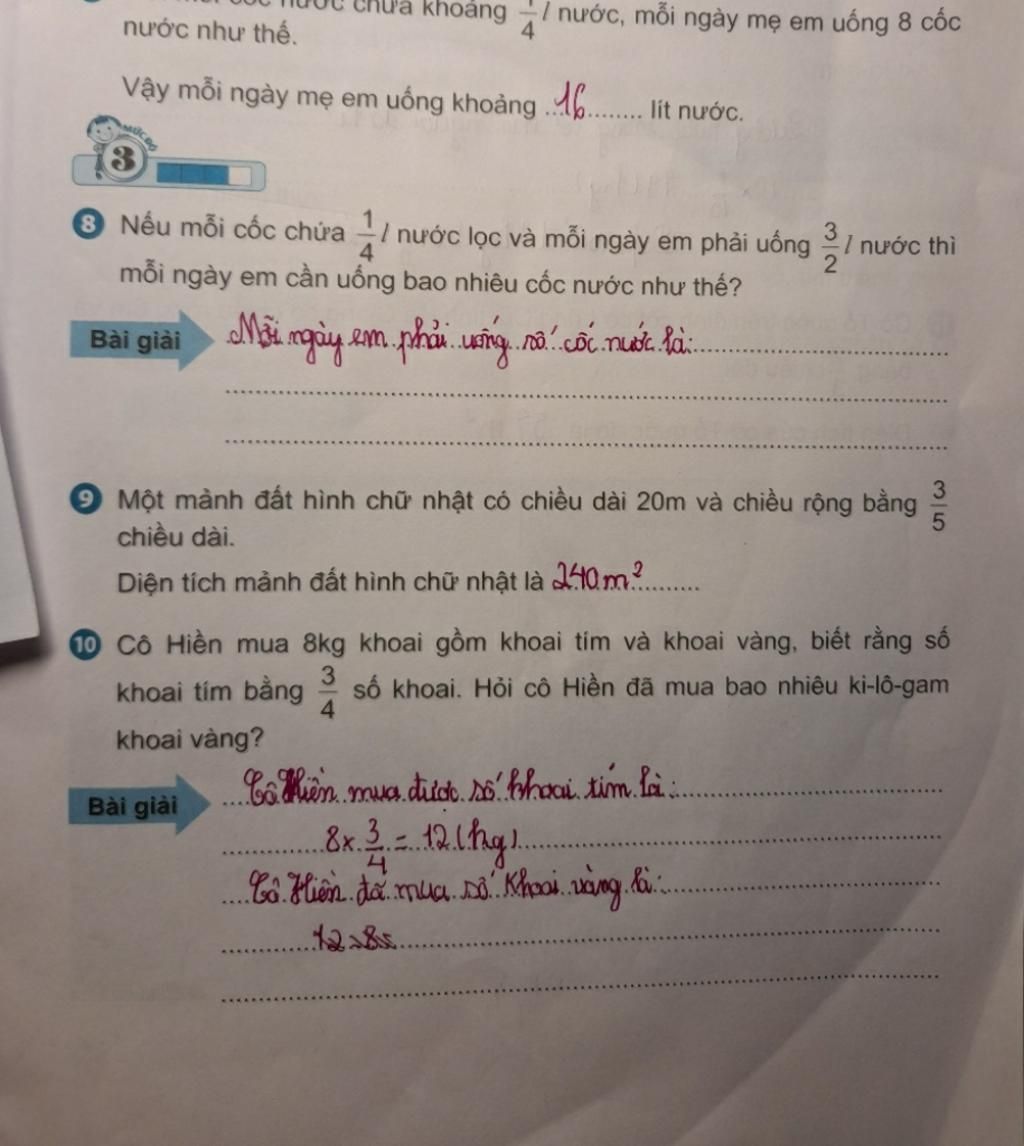 nước chứa khoảng 1/4 l nước, mỗi ngày mẹ em uống 8 cốc
nước như thế.
Vậy mỗi ngày mẹ em uống khoảng ...16........ lít nước.
MỨC ĐỘ
3
8 Nếu mỗi cốc chứa 1/4 l nước lọc và mỗi ngày em phải uống 3/2 l nước thì
mỗi ngày em cần uống bao nhiêu cốc nước như thế?
Bài giải Mỗi ngày em phải uống số cốc nước là:
9 Một mảnh đất hình chữ nhật có chiều dài 20m và chiều rộng bằng 3/5
chiều dài.
Diện tích mảnh đất hình chữ nhật là 240m²
10 Cô Hiền mua 8kg khoai gồm khoai tím và khoai vàng, biết rằng số
khoai tím bằng 3/4 số khoai. Hỏi cô Hiền đã mua bao nhiêu ki-lô-gam
khoai vàng?
Bài giải Cô Hiền mua được số khoai tím là:
8 x 3/4 = 12 (kg)
Cô Hiền đã mua số khoai vàng là: